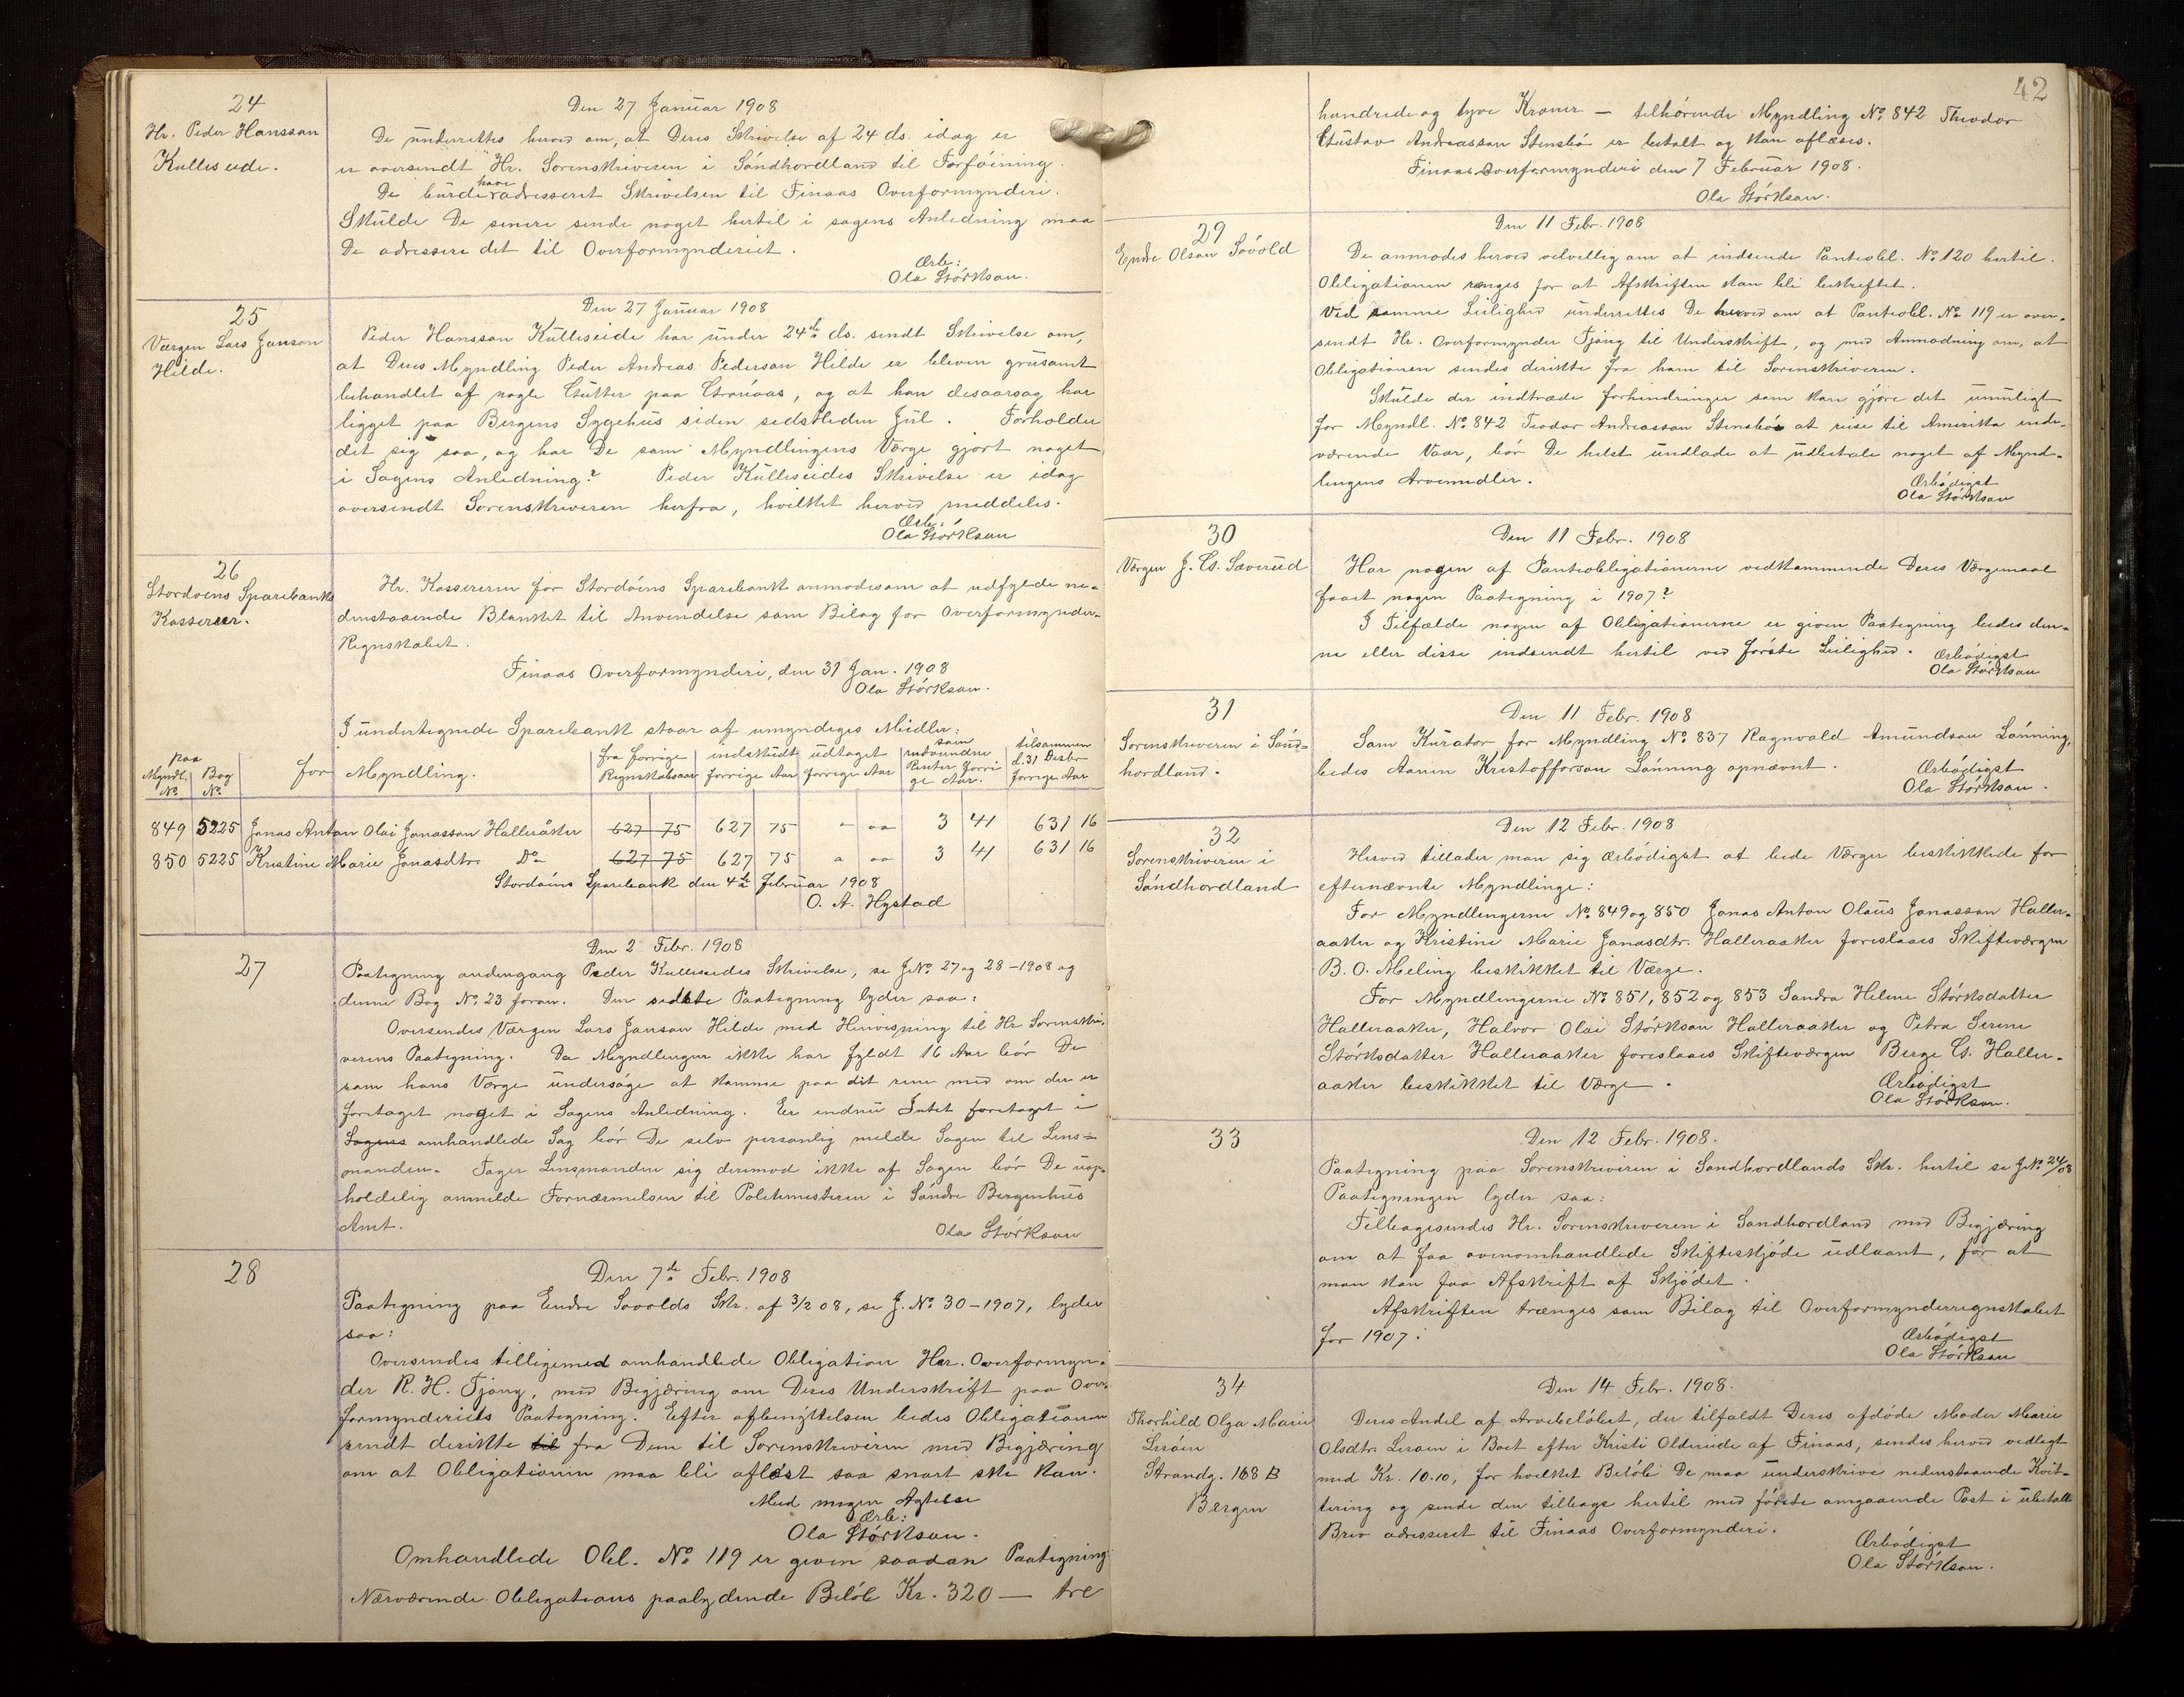 24
Hr. Peder Hansson
Kulleseide.
Den 27 Januar 1908
De underrettes herved om, at Deres Skrivelse af 24 ds. idag er
er oversendt Hr. Sorenskriveren i Söndhordland til Forföining.
De burde have adresseret Skrivelsen til Finaas Overformynderi.
Skulde De senere sende noget hertil i sagens Anledning maa
De adressere det til Overformynderiet.
Ærb:
Ola Störkson.
25
Værgen Lars Janson
Hilde.
Den 27 Januar 1908
Peder Hansson Kulleseide har under 24de ds. sendt Skrivelse om,
at Deres Myndling Peder Andreas Pederson Hilde er bleven grusomt
behandlet af nogle Gutter paa Gronaas, og at han desaarsag har
ligget paa Bergens Sygehus siden sidstleden Jul. Forholder
det sig saa, og har De som Myndlingens Værge gjort noget
i Sagens Anledning? Peder Kulleseides Skrivelse er idag
oversendt Sorenskriveren herfra, hvilket herved meddeles.
Ærb:
Ola Störkson
26
Stordöens Sparebanks
Kasserer.
Hr. Kassereren for Stordöens Sparebank anmodes om at udfylde ne-
denstaaende Blanket til Anvendelse som Bilag for Overformynder-
Regnskabet.
Finaas Overformynderi, den 31 Jan. 1908
Ola Störkson.
I undertegnede Sparebank staar af umyndiges Midler:
paa Myndl. No | Bog No. | for Myndling. | fra forrige Regnskabsaar | indskudt forrige Aar | udtaget forrige Aar | som indvundne Renter forrige Aar. | tilsammen d. 31 Desbr forrige Aar
849 5225 Jonas Anton Olai Jonasson Halleraker 627 75 627 75 - oo 3 41 631 16
850 5225 Kristine Marie Jonasdtr. Do 627 75 627 75 - oo 3 41 631 16
Stordöens Sparebank den 4de Februar 1908
O. A. Hystad
27
Den 2 Febr. 1908
Paategning andengang Peder Kulleseides Skrivelse, se J.No. 27 og 28-1908 og
denne Bog No. 23 foran. Den sidste Paategning lyder saa:
Oversendes Værgen Lars Janson Hilde med Henvisning til Hr Sorenskri-
verens Paategning. Da Myndlingen ikke har fyldt 16 Aar bör De
som hans Værge undersöge at komme paa dit rene med om der er
foretaget noget i Sagens Anledning. Er endnu Intet foretaget i
Sagens omhandlede Sag bör De selv personlig melde Sagen til Lens=
manden. Tager Lensmanden sig derimod ikke af Sagen bör De uop-
holdelig anmelde Fornærmelsen til Politimesteren i Söndre Bergenhus
Amt.
Ola Störkson
28
Den 7de Febr. 1908
Paategning paa Endre Sovolds Skr. af 3/2 08, se J. No. 30-1907, lyder
saa:
Oversendes tilligemed omhandlede Obligation Hr. Overformyn-
der R. H. Tjong, med Begjæring om Deres Underskrift paa Over-
formynderiets Paategning. Efter afbenyttelsen bedes Obligationen
sendt direkte til fra Dem til Sorenskriveren med Begjæring
om at Obligationen maa bli aflöst saa snart ske kan.
Med megen Agtelse
Ærb:
Ola Störkson.
Omhandlede Obl. No. 119 er given saadan Paategning:
Nærværende Obligations paalydende Belöb Kr. 320 — tre
42
hundrede og tyve Kroner — tilhörende Myndling No. 842 Theodor
Gustav Andreasson Stensbö er betalt og kan aflæses.
Finaas Overformynderi den 7 Februar 1908.
Ola Störkson.
29
Endre Olson Sövold
Den 11 Febr. 1908
De anmodes herved velvillig om at indsende Panteobl. No. 120 hertil.
Obligationen trænges for at Afskriften kan bli bekræftet.
Ved samme Leilighed underrettes De herved om at Panteobl. No. 119 er over-
sendt Hr. Overformynder Tjong til Underskrift, og med Anmodning om, at
Obligationen sendes direkte fra ham til Sorenskriveren.
Skulde der indtræde forhindringer som kan gjöre det umuligt
for Myndl. No. 842 Teodor Andreasson Stensbö at reise til Amerika inde-
værende Vaar, bör De helst undlade at udbetale noget af Mynd-
lingens Arvemidler.
Ærbödigst
Ola Störkson
30
Værgen J. G. Sæverud
Den 11 Febr. 1908
Har nogen af Panteobligationerne vedkommende Deres Værgemaal
faaet nogen Paategning i 1907?
I Tilfælde nogen af Obligationerne er given Paategning bedes den-
ne eller disse indsendt hertil ved förste Leilighed.
Ærbödigst
Ola Störkson
31
Sorenskriveren i Sönd=
hordland.
Den 11 Febr. 1908
Som Kurator for Myndling No. 837 Ragnvald Amundson Lönning,
bedes Aanen Kristofforson Lönning opnævnt.
Ærbödigst
Ola Störkson.
32
Sorenskriveren i
Söndhordland
Den 12 Febr. 1908
Herved tillader man sig ærbödigst at bede Værger beskikkede for
efternævnte Myndlinge:
For Myndlingerne No. 849 og 850 Jonas Anton Olaus Jonasson Haller-
aaker og Kristine Marie Jonasdtr. Halleraaker foreslaaes Skifteværgen
B. O. Meling beskikket til Værge.
For Myndlingerne No. 851, 852 og 853 Sandra Helene Störksdatter
Halleraaker, Halvor Olai Störkson Halleraaker og Petra Serine
Störksdatter Halleraaker foreslaaes Skifteværgen Berge G. Haller-
aaker beskikket til Værge.
Ærbödigst
Ola Störkson.
33
Den 12 Febr. 1908.
Paategning paa Sorenskriveren i Sondhordlands Skr. hertil se J.No. 24/08
Paategningen lyder saa:
Tilbagesendes Hr. Sorenskriveren i Sondhordland med Begjæring
om at faa ovenomhandlede Skifteskjöde udlaant, for at
man kan faa Afskrift af Skjödet.
Afskriften trænges som Bilag til Overformynderregnskabet
for 1907.
Ærbödigst
Ola Störkson
34
Thorhild Olga Marie
Leröen
Strandg. 168 B
Bergen
Den 14 Febr. 1908.
Deres Andel af Arvebelöbet, der tilfaldt Deres afdöde Moder Marie
Olsdtr. Leröen i Boet efter Kristi Oldereide af Finaas, sendes herved vedlagt
med Kr. 10.10, for hvilket Belöb De maa underskrive nedenstaaende Kvit-
tering og sende den tilbage hertil med förste omgaaende Post i ubetalt
Brev adresseret til Finaas Overformynderi.
Ærbödigst
Ola Störkson.